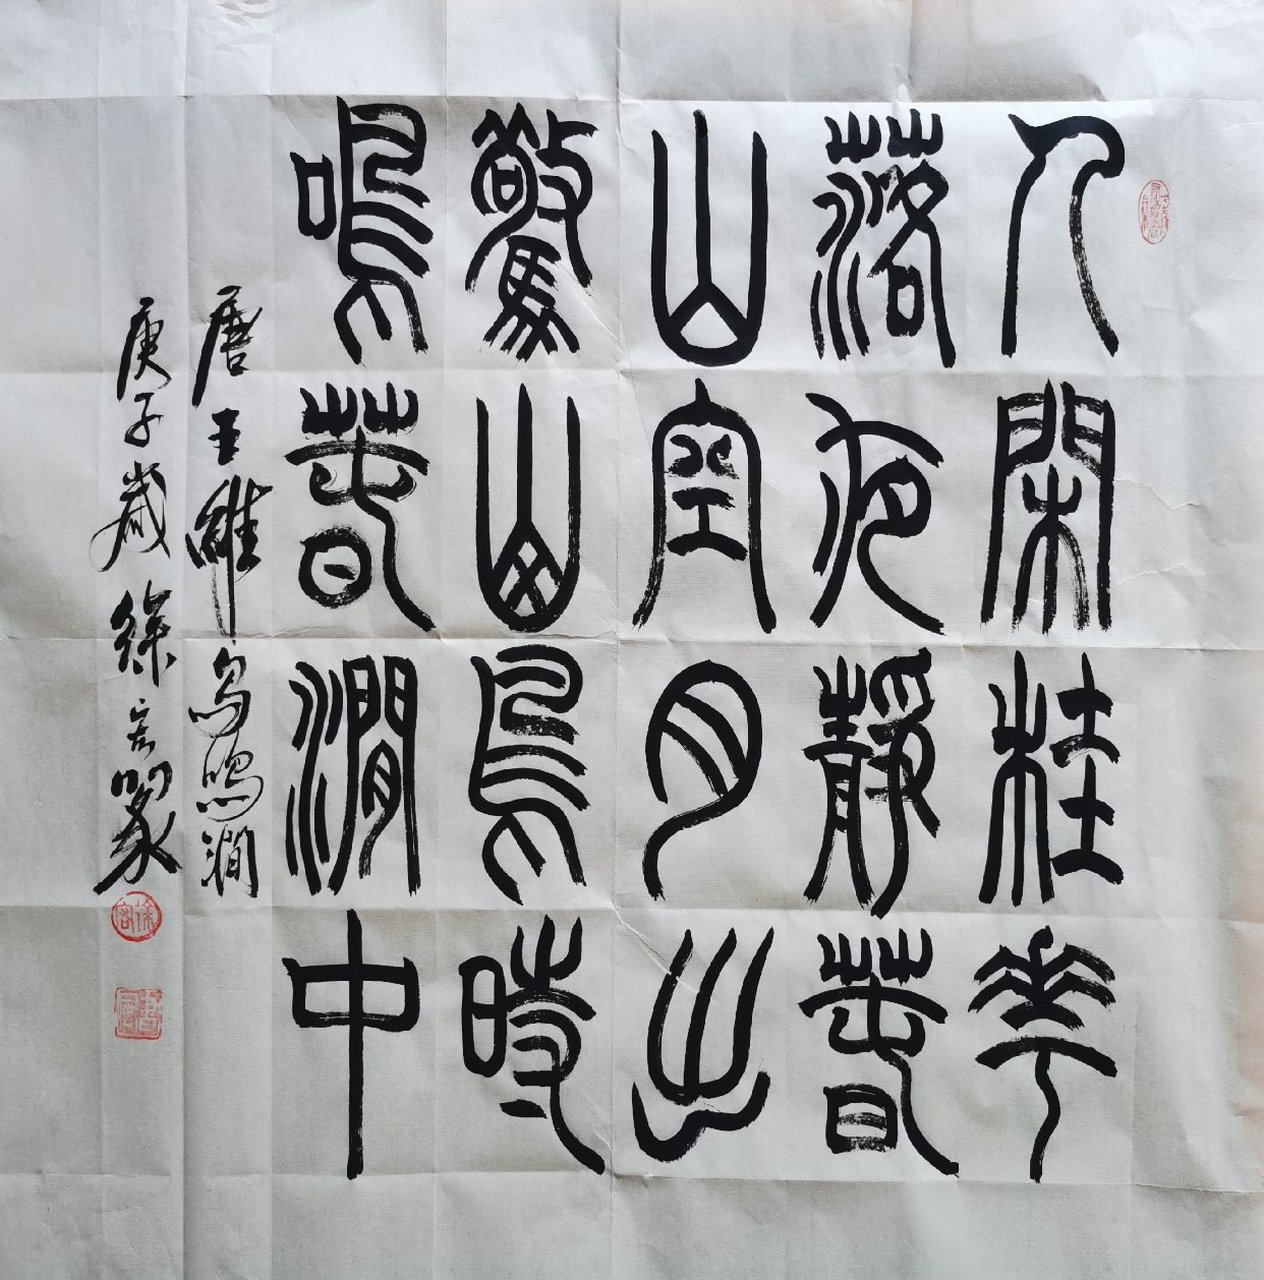 人閑桂花
落夜靜春
山空月出
驚山鳥時
鳴春澗中
唐王維鳥鳴澗
庚子歲徐